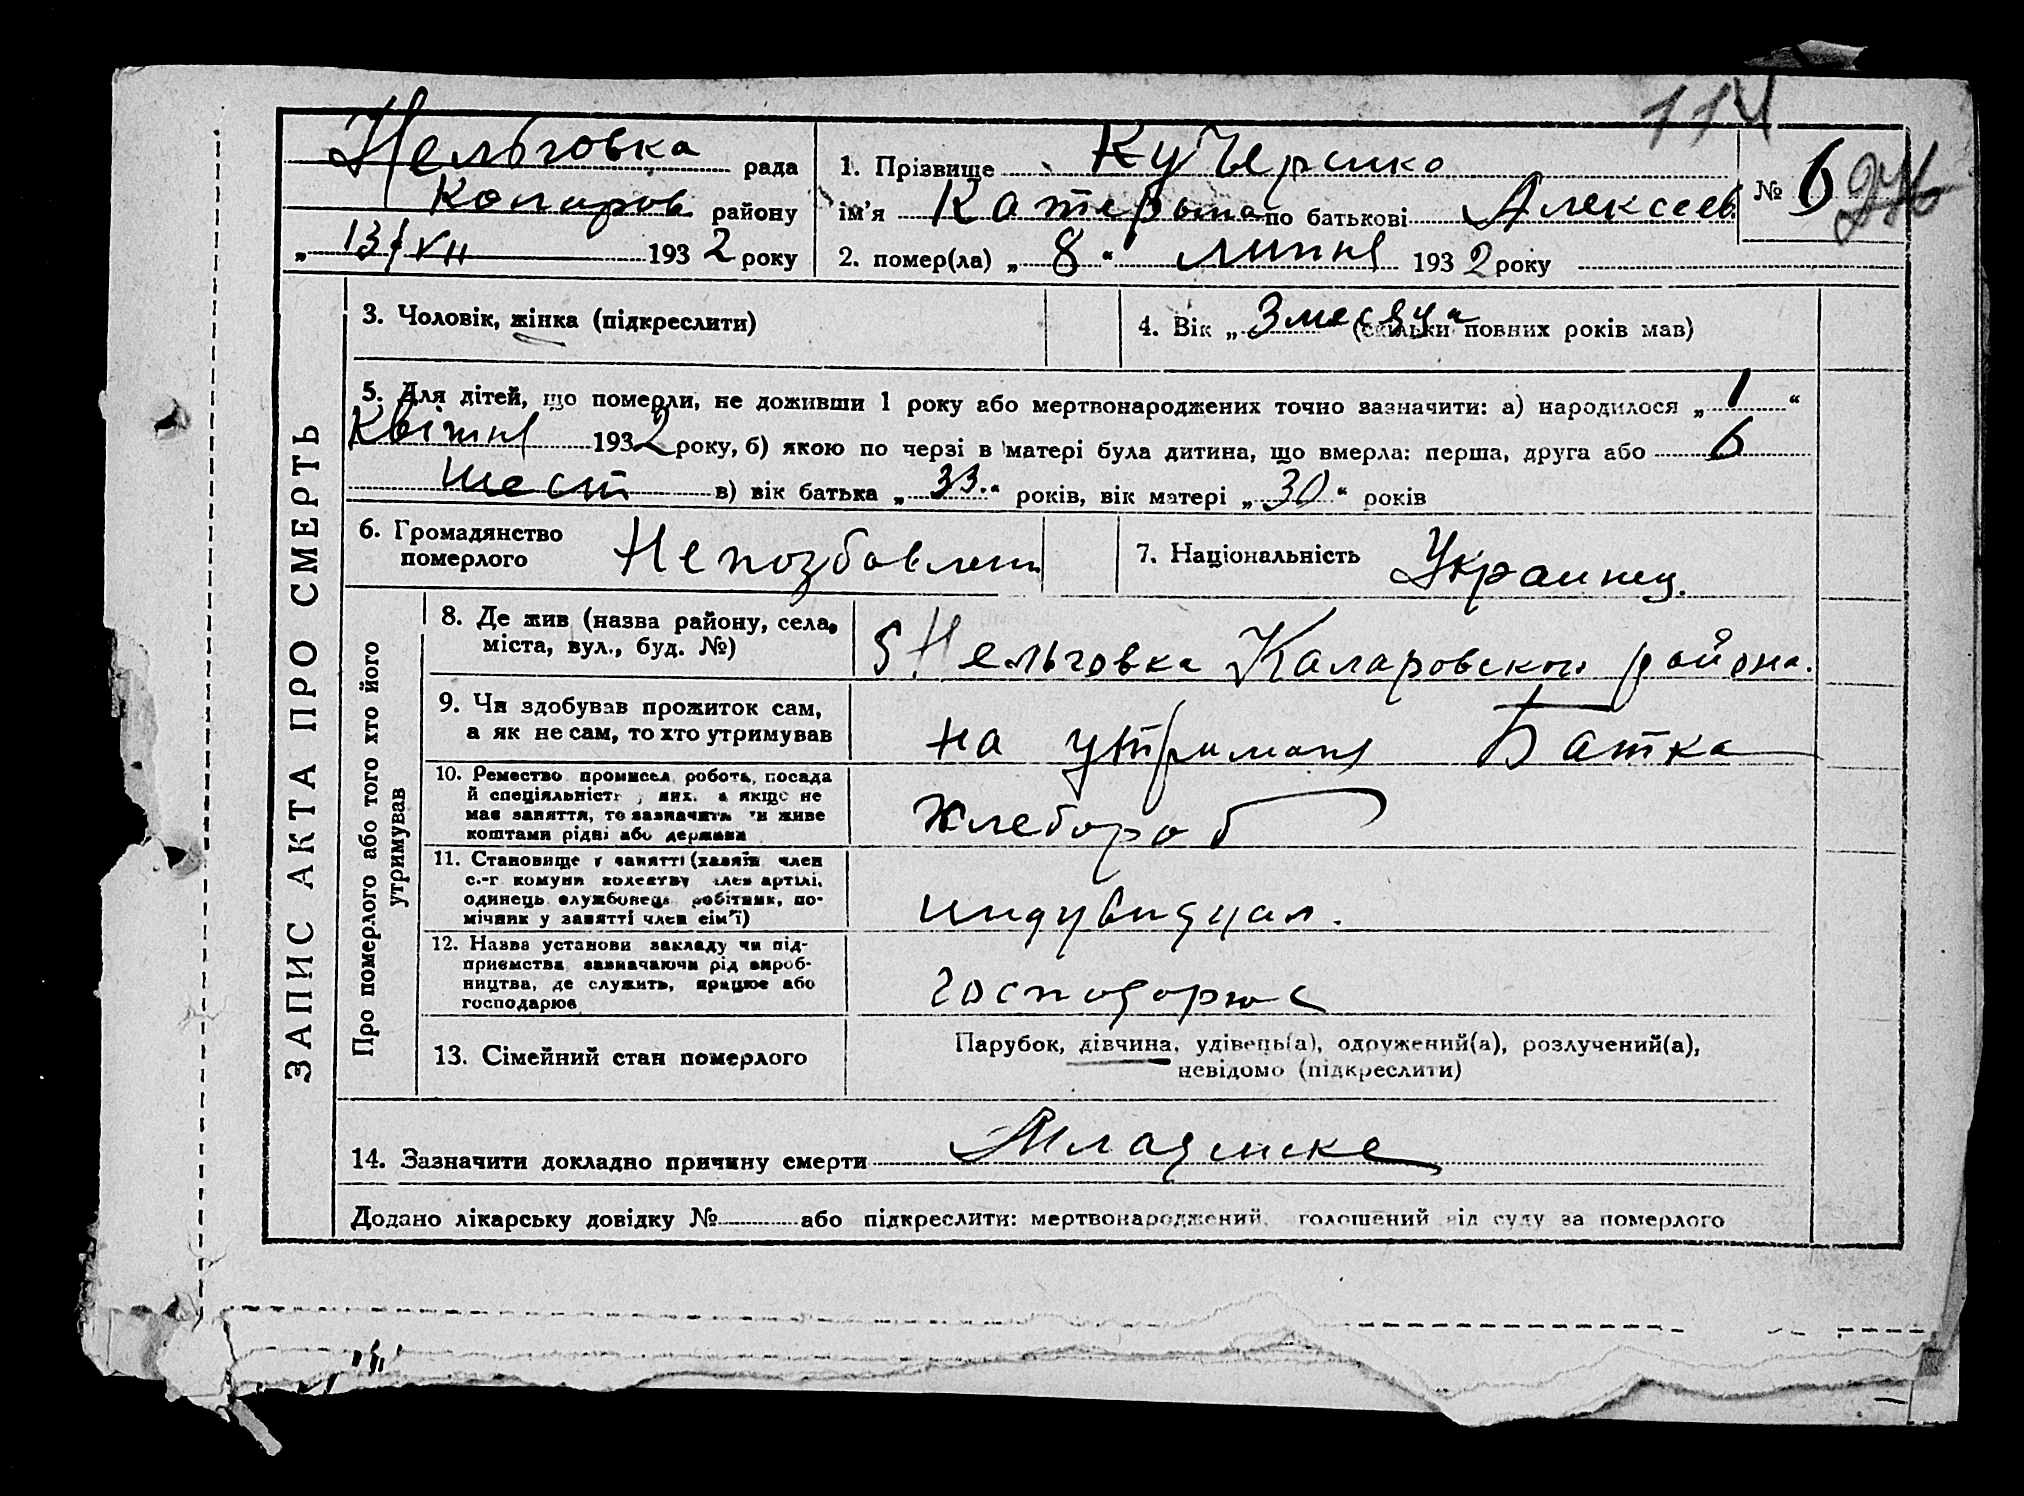 114
Нельговка рада
Коларов району
„ 13/VII 1932 року
1. Прізвище Кучеренко
ім'я Катерына по батькові Алексеев.
2. помер(ла) „ 8 “ липня 1932 року
№ 6
ЗАПИС АКТА ПРО СМЕРТЬ
3. Чоловік, жінка (підкреслити)
4. Вік „ 3 месяца (скільки повних років мав)
5. Для дітей, що померли, не доживши 1 року або мертвонароджених точно зазначити: а) народилося „ 1 “
Квітня 1932 року, б) якою по черзі в матері була дитина, що вмерла: перша, друга або 6
шест в) вік батька „ 33. “ років, вік матері „ 30 “ років
6. Громадянство
померлого
Непозбавлен
7. Національність Украинец.
Про померлого або того хто його
утримував
8. Де жив (назва району, села,
міста, вул., буд. №)
Нельговка Коларовского района.
9. Чи здобував прожиток сам,
а як не сам, то хто утримував
на утриманя Батка
10. Ремество промисел, робота, посада
й спеціяльність у них, а якщо не
має заняття, то зазначити чи живе
коштами рідні або держави
Хлебороб
11. Становище у занятті (хазяїн, член
с.-г. комуни колективу член артілі,
одинець службовець робітник, по-
мічник у занятті член сім'ї)
индувидуал.
12. Назва установи закладу чи під-
приємства зазначаючи рід вироб-
ництва, де служить, працює або
господарює
господорюе
13. Сімейний стан померлого
Парубок, дівчина, удівець(а), одружений(а), розлучений(а),
невідомо (підкреслити)
14. Зазначити докладно причину смерти Младенске
Додано лікарську довідку № або підкреслити: мертвонароджений, голошений від суду за померлого